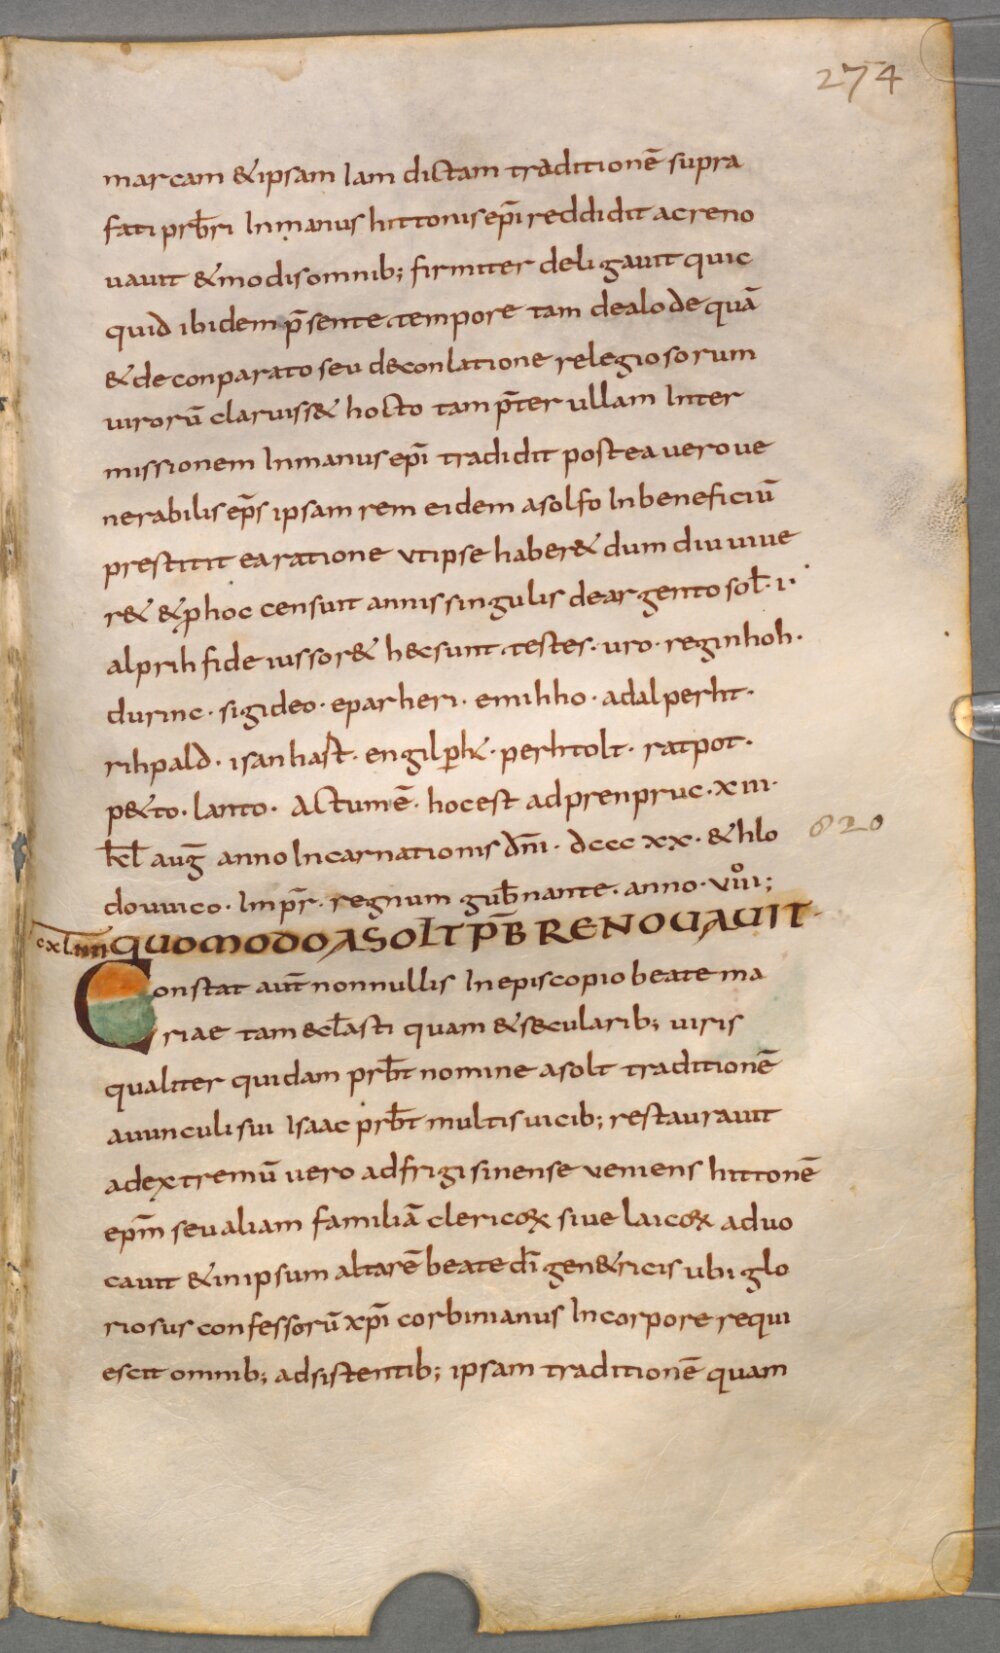 274
marcam & ipsam Iam dictam traditionē supra
fati prƀri In manus hittonis ep̄i reddidit ac reno
uauit & modis omnib; firmiter deligauit quic
quid ibidem p̄sente tempore tam de alode quā
& de conparato seu de conlatione relegiosorum
uirorū claruiss& hoc totam p̄ter ullam Inter
missionem In manus ep̄i tradidit postea uero ue
nerabilis ep̄s ipsam rem eidem asolfo In beneficiū
prestitit ea ratione vt ipse haber& dum diu uiue
r& & p hoc censuit annis singulis de argento sol̄ · i ·
alprih fideiussor & hec sunt testes · uro · reginhoh ·
durinc · sigideo · eparheri · emihho · adalperht ·
rihpald · isanhast · engilp̄h& · perhtolt · ratpot ·
p&to · lanto · Actum ē · hoc est ad prenpruc · xiii ·
kl̄ aug̅ anno Incarnationis dn̄i · dccc xx · & hlo
820
douuico · Imp̄r · regnum gub̄nante · anno · viiii ;
cxlviiii QUOMODO ASOLT PB̄ RENOUAUIT ·
Constat aut̄ nonnullis In episcopio beate ma
riae tam eccl̄asti quam & secularib; uiris
qualiter quidam prƀt nomine asolt traditionē
auunculi sui Isaac prƀt multis uicib; restaurauit
ad extremū uero ad frigisinense veniens hittonē
ep̄m seu aliam familiā clericoꝝ siue laicoꝝ aduo
cauit & in ipsum altarē beate dī gen&ricis ubi glo
riosus confessorū xp̄i corbinianus In corpore requi
escit omnib; adsistentib; ipsam traditionē quam